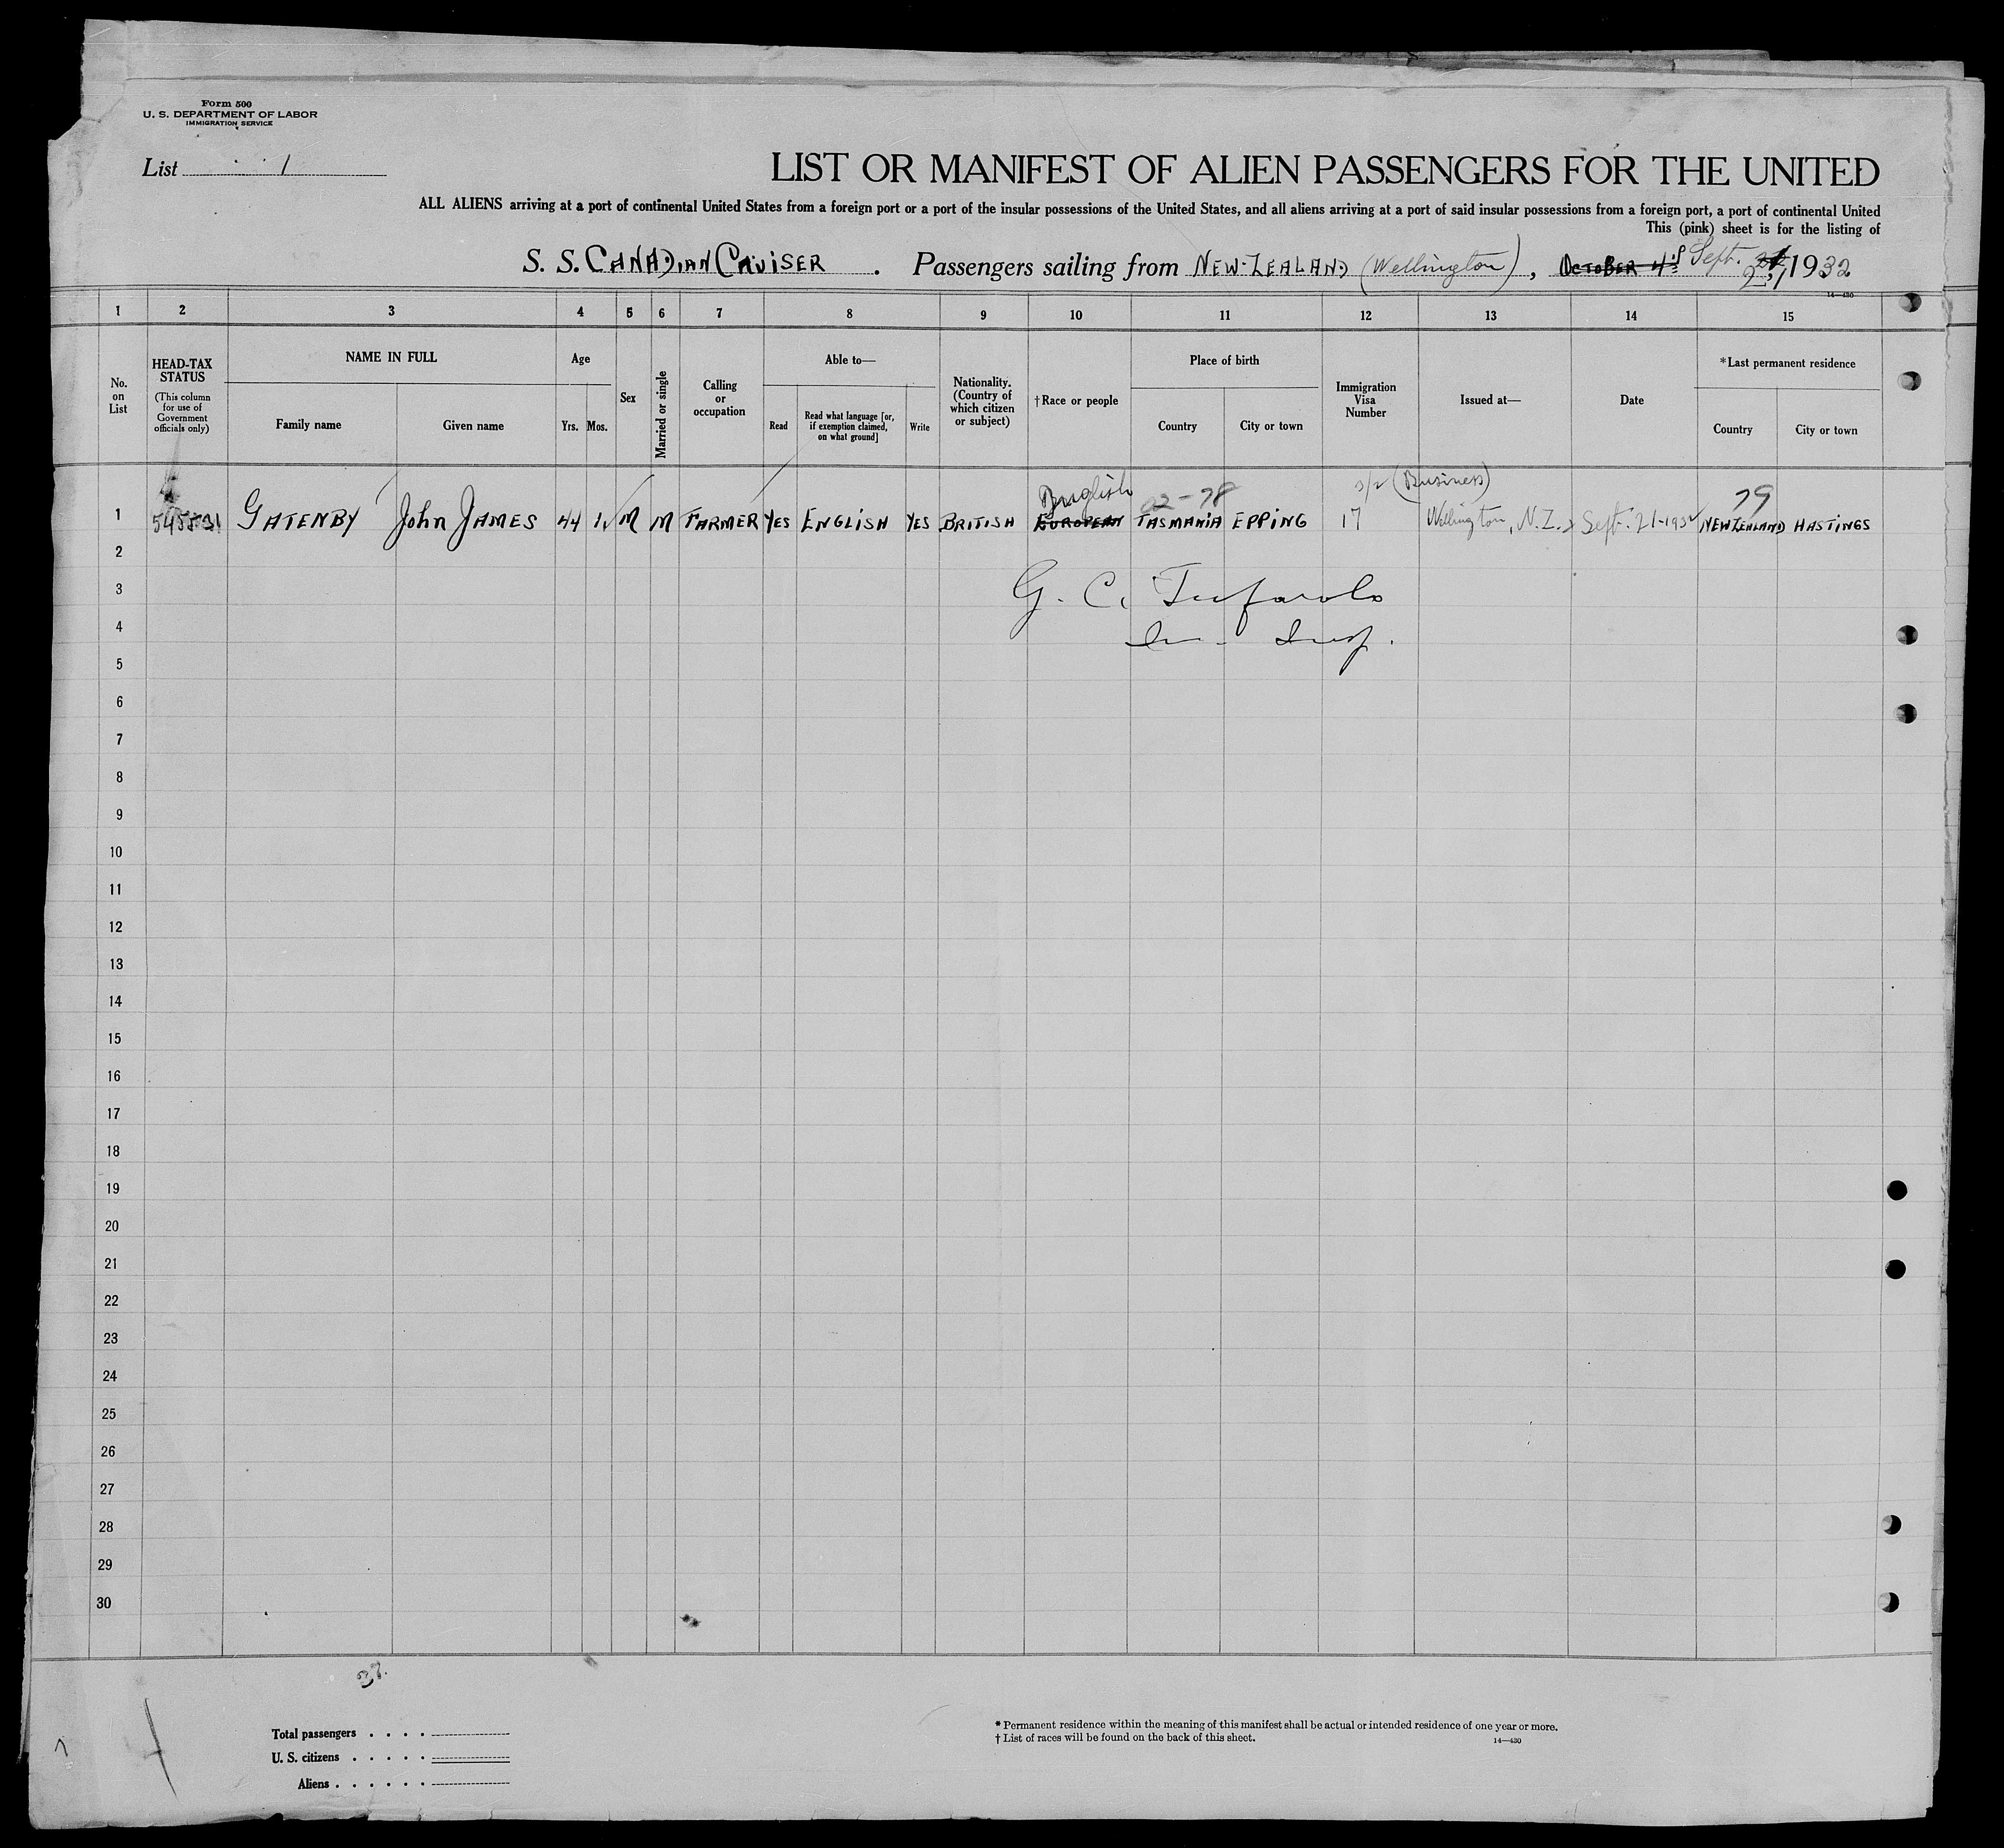 Form 500
U. S. DEPARTMENT OF LABOR
IMMIGRATION SERVICE
List 1
LIST OR MANIFEST OF ALIEN PASSENGERS FOR THE UNITED
ALL ALIENS arriving at a port of continental United States from a foreign port or a port of the insular possessions of the United States, and all aliens arriving at a port of said insular possessions from a foreign port, a port of continental United
This (pink) sheet is for the listing of
S. S. CANADIAN CRUISER . Passengers sailing from NEW-ZEALAND (Wellington) , OCTOBER 4th Sept. 21, 1932
14—430
1 2 3 4 5 6 7 8 9 10 11 12 13 14 15
No. on List
HEAD-TAX STATUS
(This column for use of Government officials only)
NAME IN FULL
Family name Given name
Age
Yrs. Mos.
Sex
Married or single
Calling or occupation
Able to—
Read
Read what language [or, if exemption claimed, on what ground]
Write
Nationality. (Country of which citizen or subject)
†Race or people
Place of birth
Country City or town
Immigration Visa Number
Issued at—
Date
*Last permanent residence
Country City or town
English 02-78 3/2 (Business) 79
1 GATENBY John JAMES 44 M M FARMER YES ENGLISH YES BRITISH EUROPEAN TASMANIA EPPING 17 Wellington, N.Z. Sept. 21-1932 NEW ZEALAND HASTINGS
2
3 G. C.
4 Im. Insp.
5
6
7
8
9
10
11
12
13
14
15
16
17
18
19
20
21
22
23
24
25
26
27
28
29
30
Total passengers . . . .
U. S. citizens . . . . .
Aliens . . . . . .
* Permanent residence within the meaning of this manifest shall be actual or intended residence of one year or more.
† List of races will be found on the back of this sheet.
14—430